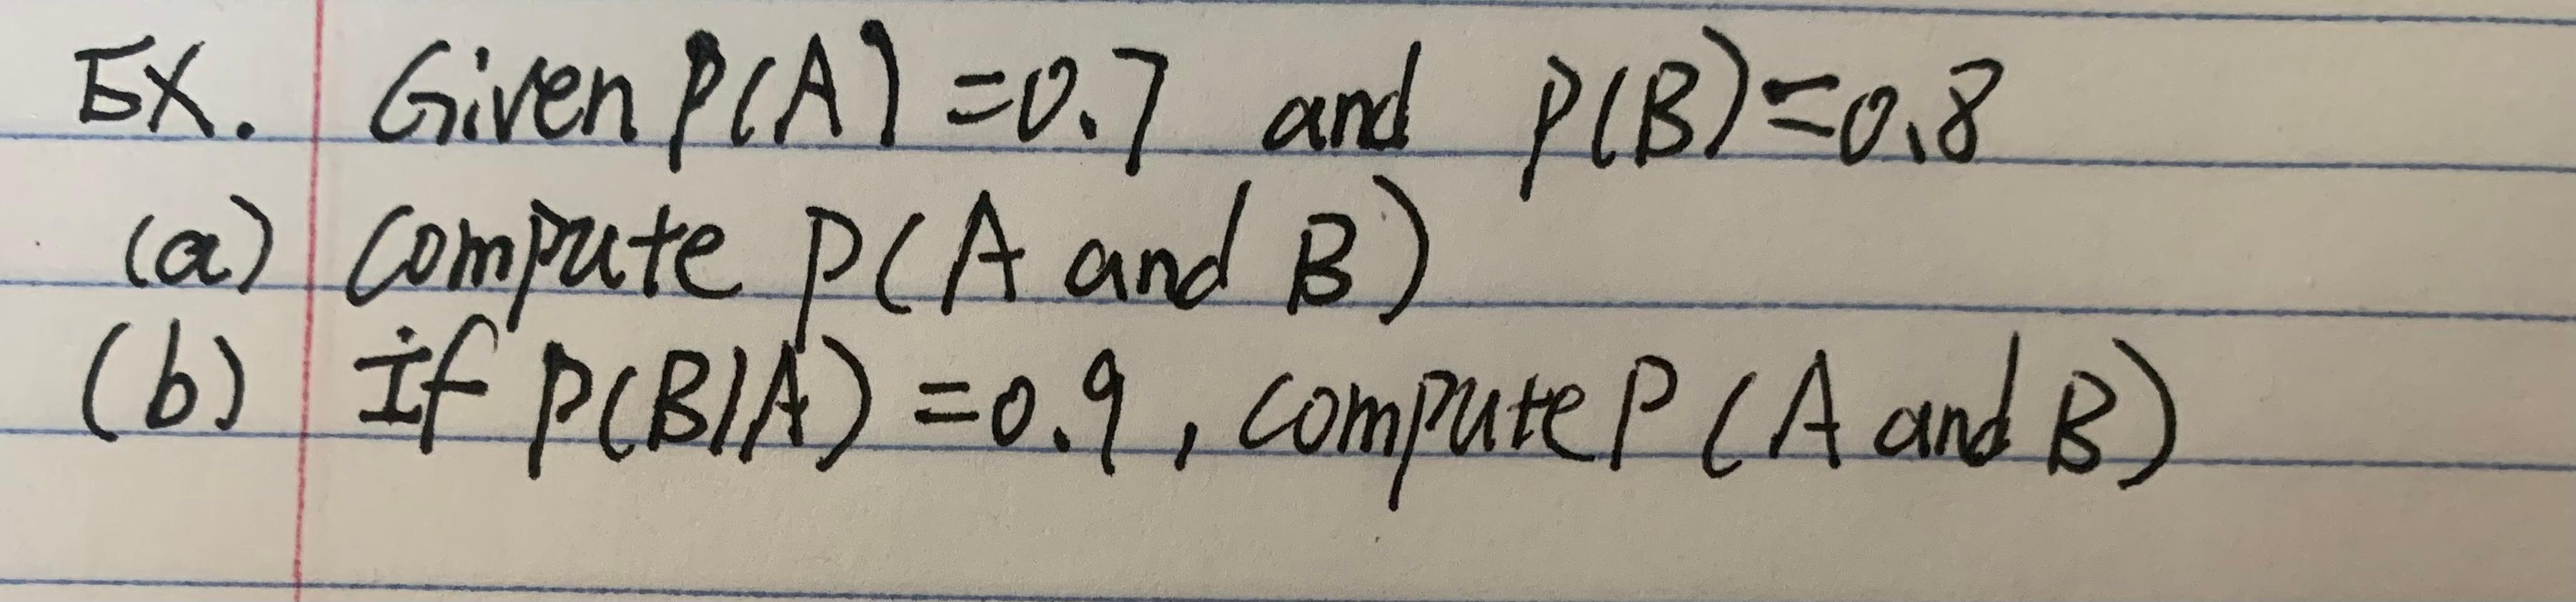 EX. Given P(A) = 0.7 and P(B) = 0.8
(a) compute P(A and B)
(b) If P(B|A) = 0.9, compute P(A and B)